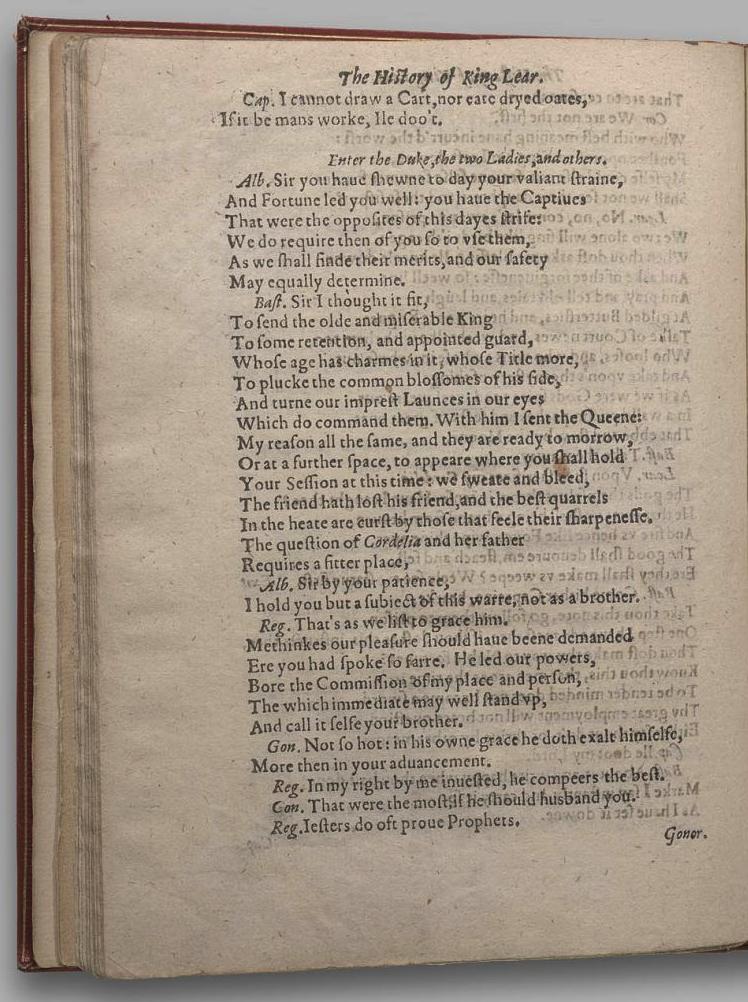 The Hiſtory of King Lear.
Cap. I cannot draw a Cart, nor eate dryed oates,
If it be mans worke, Ile doo't.
Enter the Duke, the two Ladies, and others.
Alb. Sir you haue ſhewne to day your valiant ſtraine,
And Fortune led you well: you haue the Captiues
That were the oppoſites of this dayes ſtrife:
We do require then of you ſo to vſe them,
As we ſhall finde their merits, and our ſafety
May equally determine.
Baſt. Sir I thought it fit,
To ſend the olde and miſerable King
To ſome retention, and appointed guard,
Whoſe age has charmes in it, whoſe Title more,
To plucke the common bloſſomes of his ſide,
And turne our impreſt Launces in our eyes
Which do command them. With him I ſent the Queene:
My reaſon all the ſame, and they are ready to morrow,
Or at a further ſpace, to appeare where you ſhall hold
Your Seſſion at this time: we ſweate and bleed,
The friend hath loſt his friend, and the beſt quarrels
In the heate are curſt by thoſe that feele their ſharpeneſſe.
The queſtion of Cordelia and her father
Requires a fitter place,
Alb. Sir by your patience,
I hold you but a ſubiect of this warre, not as a brother.
Reg. That's as we liſt to grace him.
Methinkes our pleaſure ſhould haue beene demanded
Ere you had ſpoke ſo farre. He led our powers,
Bore the Commiſſion of my place and perſon,
The which immediate may well ſtand vp,
And call it ſelfe your brother.
Gon. Not ſo hot: in his owne grace he doth exalt himſelfe,
More then in your aduancement.
Reg. In my right by me inueſted, he compeers the beſt.
Gon. That were the moſt, if he ſhould husband you.
Reg. Ieſters do oft proue Prophets.
Gonor.